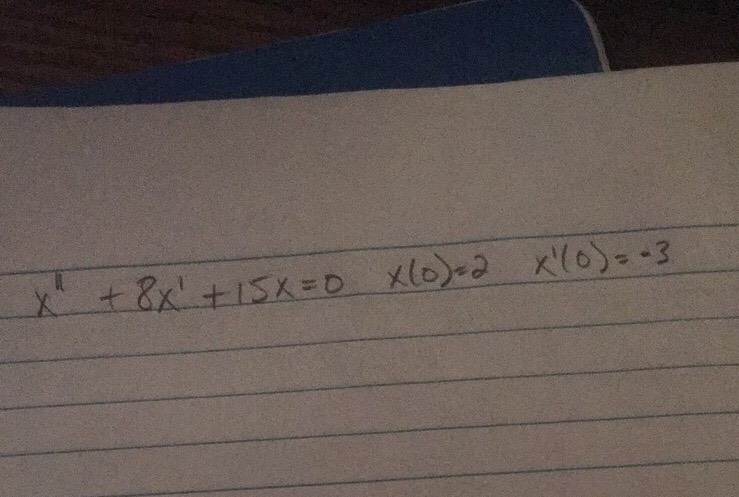 x'' + 8x' + 15x = 0 x(0)=2 x'(0)=-3